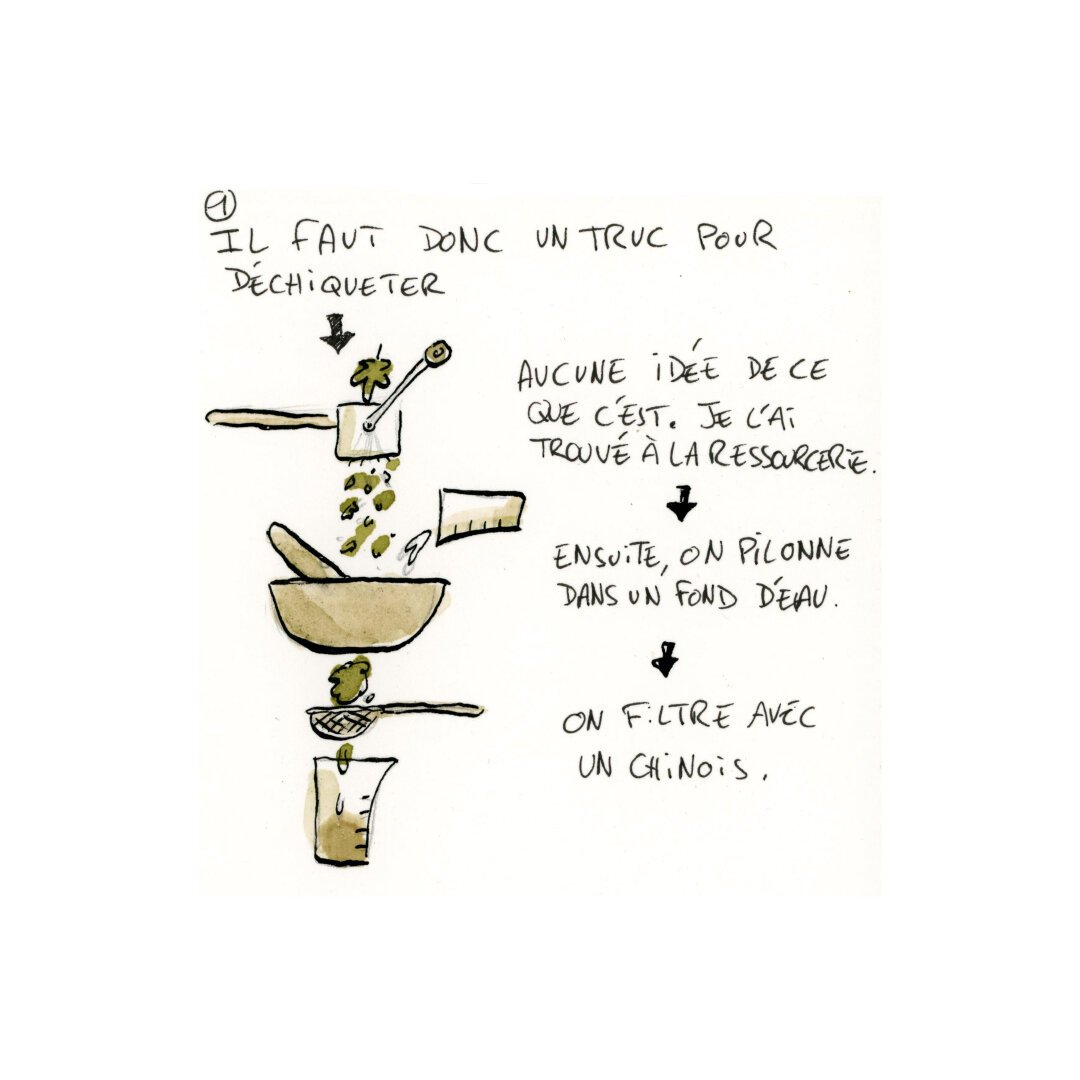 1
IL FAUT DONC UN TRUC POUR
DÉCHIQUETER
AUCUNE IDÉE DE CE
QUE C'EST. JE L'AI
TROUVÉ À LA RESSOURCERIE.
ENSUITE, ON PILONNE
DANS UN FOND D'EAU.
ON FILTRE AVEC
UN CHINOIS.